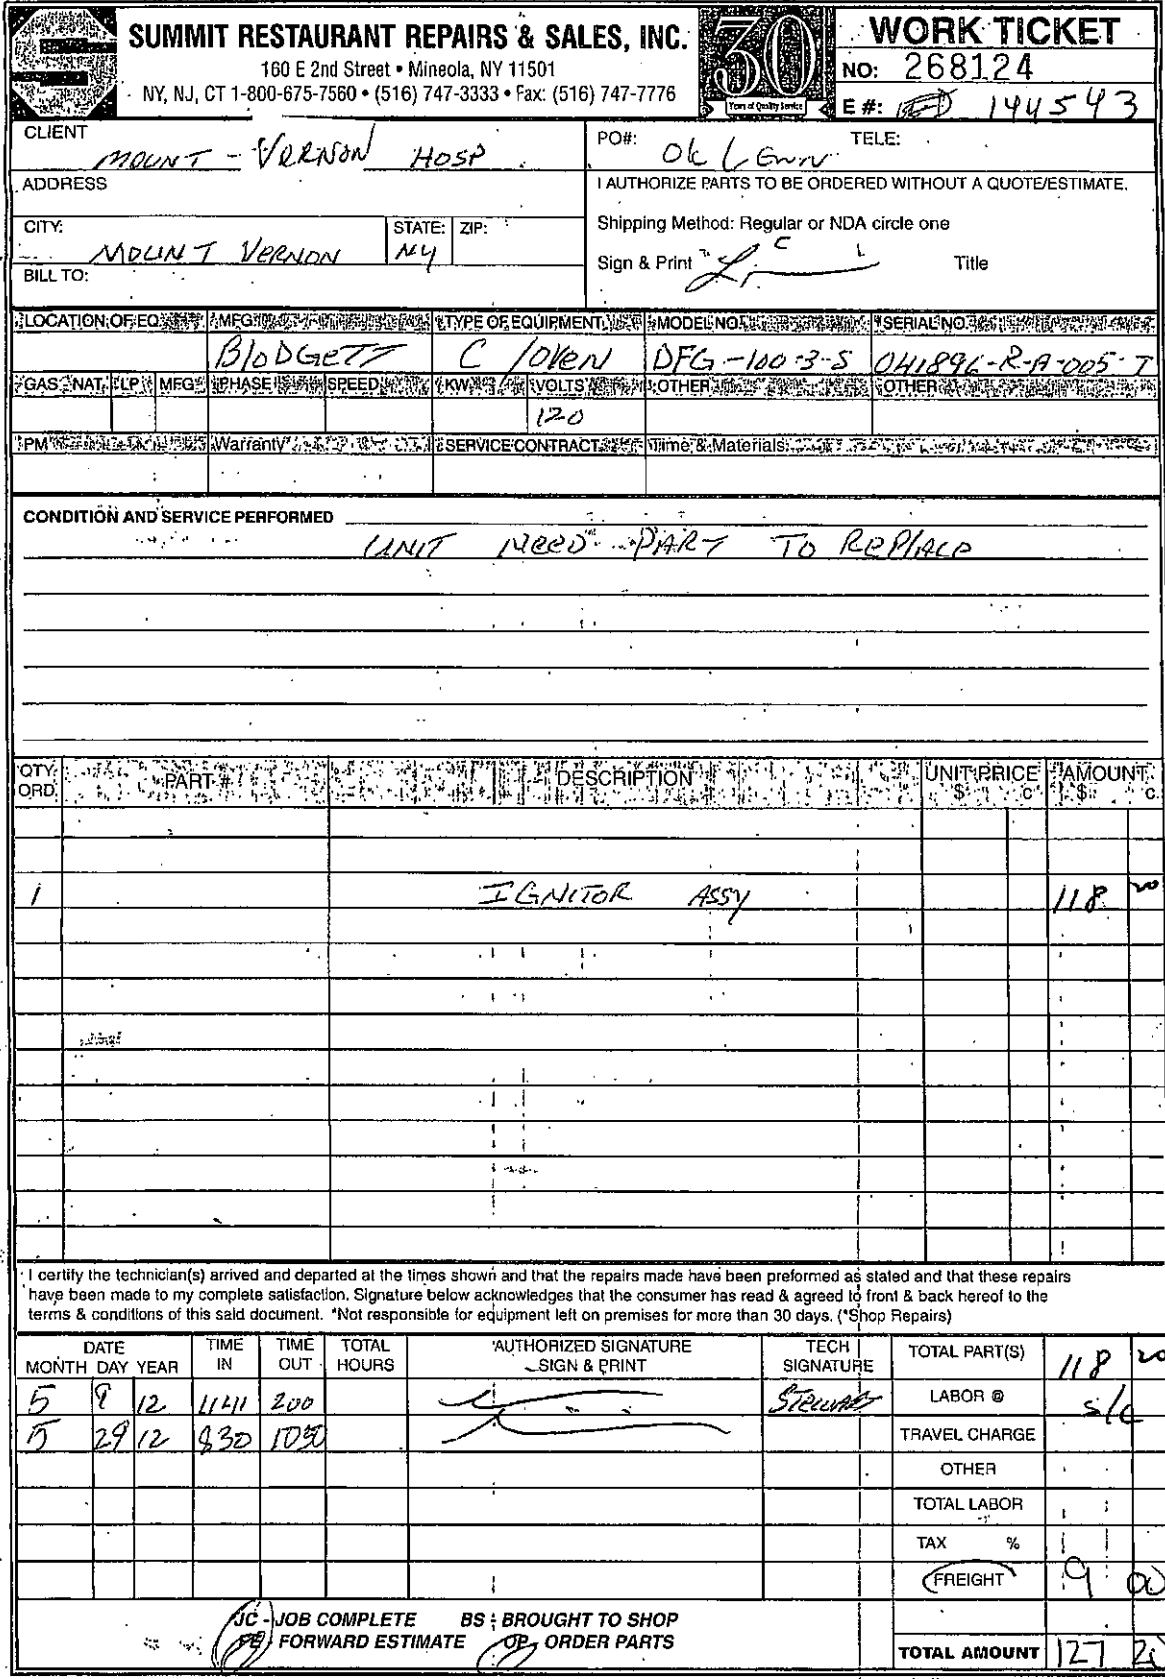 SUMMIT RESTAURANT REPAIRS & SALES, INC.
160 E 2nd Street • Mineola, NY 11501
NY, NJ, CT 1-800-675-7560 • (516) 747-3333 • Fax: (516) 747-7776
30
Years of Quality Service
WORK TICKET
NO: 268124
E #: 144543
CLIENT MOUNT - VERNON HOSP
PO#: OK TELE:
ADDRESS
I AUTHORIZE PARTS TO BE ORDERED WITHOUT A QUOTE/ESTIMATE.
CITY: MOUNT VERNON STATE: NY ZIP:
Shipping Method: Regular or NDA circle one
BILL TO:
Sign & Print Title
LOCATION OF EQ. MFG TYPE OF EQUIPMENT MODEL NO. SERIAL NO.
BLODGETT C /OVEN DFG-100-3-S 041896-R-A-005-T
GAS NAT. LP MFG PHASE SPEED KW VOLTS OTHER OTHER
120
PM Warranty SERVICE CONTRACT Time & Materials
CONDITION AND SERVICE PERFORMED
UNIT NEED PART TO REPLACE
QTY. ORD. PART # DESCRIPTION UNIT PRICE $ C AMOUNT $ C
1 IGNITOR ASSY 118 20
I certify the technician(s) arrived and departed at the times shown and that the repairs made have been preformed as stated and that these repairs
have been made to my complete satisfaction. Signature below acknowledges that the consumer has read & agreed to front & back hereof to the
terms & conditions of this said document. *Not responsible for equipment left on premises for more than 30 days. (*Shop Repairs)
DATE MONTH DAY YEAR TIME IN TIME OUT TOTAL HOURS AUTHORIZED SIGNATURE SIGN & PRINT TECH SIGNATURE TOTAL PART(S) 118 20
5 9 12 1141 200 LABOR @ s/c
5 29 12 830 1030 TRAVEL CHARGE
OTHER
TOTAL LABOR
TAX %
FREIGHT 9 00
JC - JOB COMPLETE BS - BROUGHT TO SHOP
FE - FORWARD ESTIMATE OP - ORDER PARTS
TOTAL AMOUNT 127 20